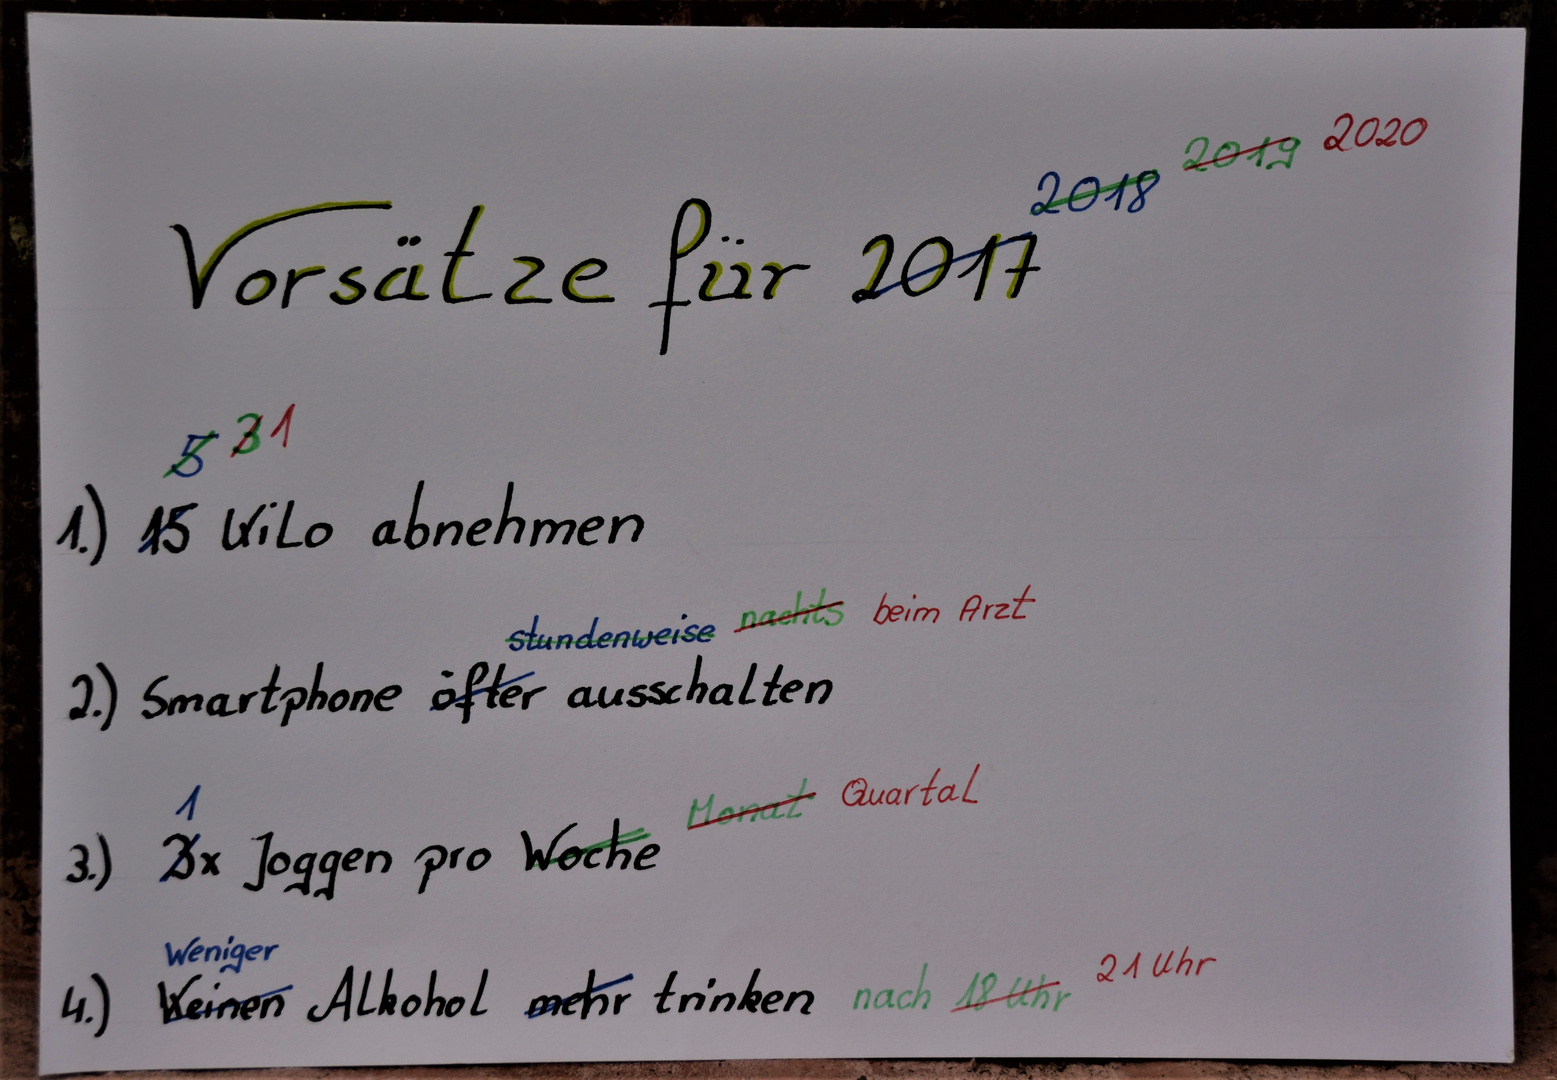 2018 2019 2020
Vorsätze für 2017
5 3 1
1.) 15 Kilo abnehmen
stundenweise nachts beim Arzt
2.) Smartphone öfter ausschalten
1 Monat Quartal
3.) 3x Joggen pro Woche
Weniger 21 Uhr
4.) Keinen Alkohol mehr trinken nach 18 Uhr